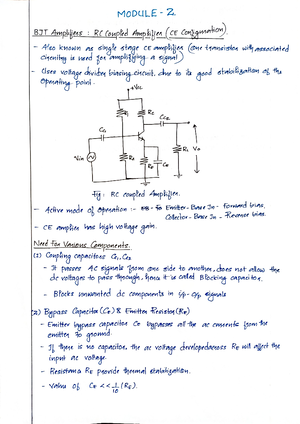 MODULE - 2.
BJT Amplifiers : RC Coupled Amplifier (CE Configuration).
- Also known as single stage CE amplifier (one transistor with associated
circuitry is used for amplifying a signal)
- Uses voltage divider biasing circuit, due to its good stabilization of the
operating point.
+Vcc
R1
Rc
CC2
CC1
Vin
R2
RE
CE
RL
Vo
Fig: RC coupled Amplifier.
- Active mode of operation :- Emitter-Base Jn - Forward bias,
Collector-Base Jn - Reverse bias.
- CE amplifier has high voltage gain.
Need for Various Components.
(1) Coupling capacitors CC1, CC2
- It passes AC signals from one side to another, does not allow the
dc voltages to pass through, hence it is called Blocking capacitor.
- Blocks unwanted dc components in i/p - o/p signals
(2) Bypass Capacitor (CE) & Emitter Resistor (RE)
- Emitter bypass capacitor CE bypasses all the ac currents from the
emitter to ground
- If there is no capacitor, the ac voltage developed across RE will affect the
input ac voltage.
- Resistance RE provide thermal stabilization.
- Value of CE << 1/10 (RE).